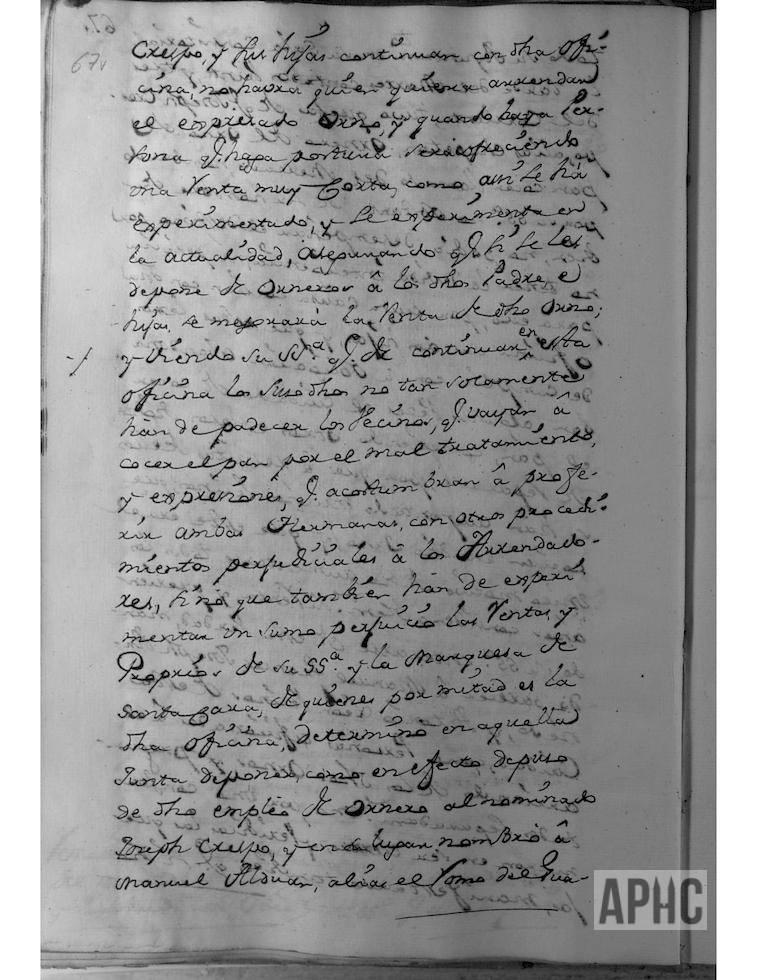 67v
Crespo, y sus hijas continuan con dha Ofi-
cina, no havrà quien quiera arrendar
el expresado Orno, y quando haya Per-
sona q.e haga postura serà ofreciendo
una Renta muy Corta, como assi se hà
experimentado, y se experimenta en
la actualidad, asegurando q.e si se les
depone de Orneros â los dhos Padre, e
hijas, se mejorarà la Renta de dho Orno;
y viendo su SS.ª q.e de continuar en esta
oficina los susodhos no tan solamente
hàn de padecer los Vecinos, q.e vayan â
cocer el pan por el mal tratamiento,
y expresiones, q.e acostumbran â profe-
rir ambas Hermanas, con otros procedi-
mientos perjudiciales â los Arrendado-
res, sino que tambien hàn de experi-
mentar un sumo perjuicio las Rentas, y
Proprios de su SS.ª y la Marquesa de
Santa Cara, de quienes por mitad es la
dha Oficina, determinò en aquella
Junta deponer, como en efecto depuso
de dho empleo de Ornero al nominado
Joseph Crespo, y en su lugar nombrò â
Manuel Alduan, alias el Romo del Gua-
APHC